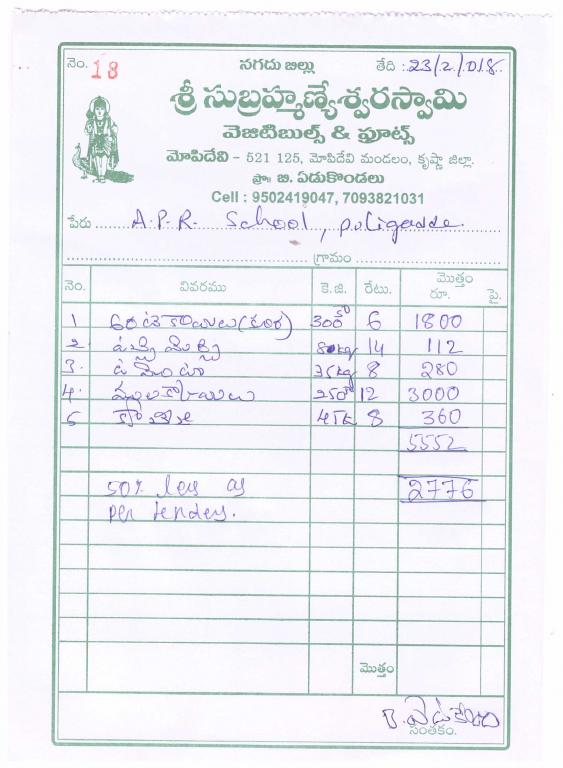 నెం. 18 నగదు బిల్లు తేది : 23/2/018
శ్రీ సుబ్రహ్మణ్యేశ్వరస్వామి
వెజిటిబుల్స్ & ఫ్రూట్స్
మోపిదేవి - 521 125, మోపిదేవి మండలం, కృష్ణా జిల్లా.
ప్రొః బి. ఏడుకొండలు
Cell : 9502419047, 7093821031
పేరు A.P.R. School, puligadda
గ్రామం
నెం. వివరము కె.జి. రేటు. మొత్తం రూ. పై.
1 (కూర) 300 6 1800
2. 14 112
3. 35kg 8 280
4. 250 12 3000
5 45k 8 360
5552
50% less as 2776
per tenders.
మొత్తం
బి. ఏడుకొండలు
సంతకం.